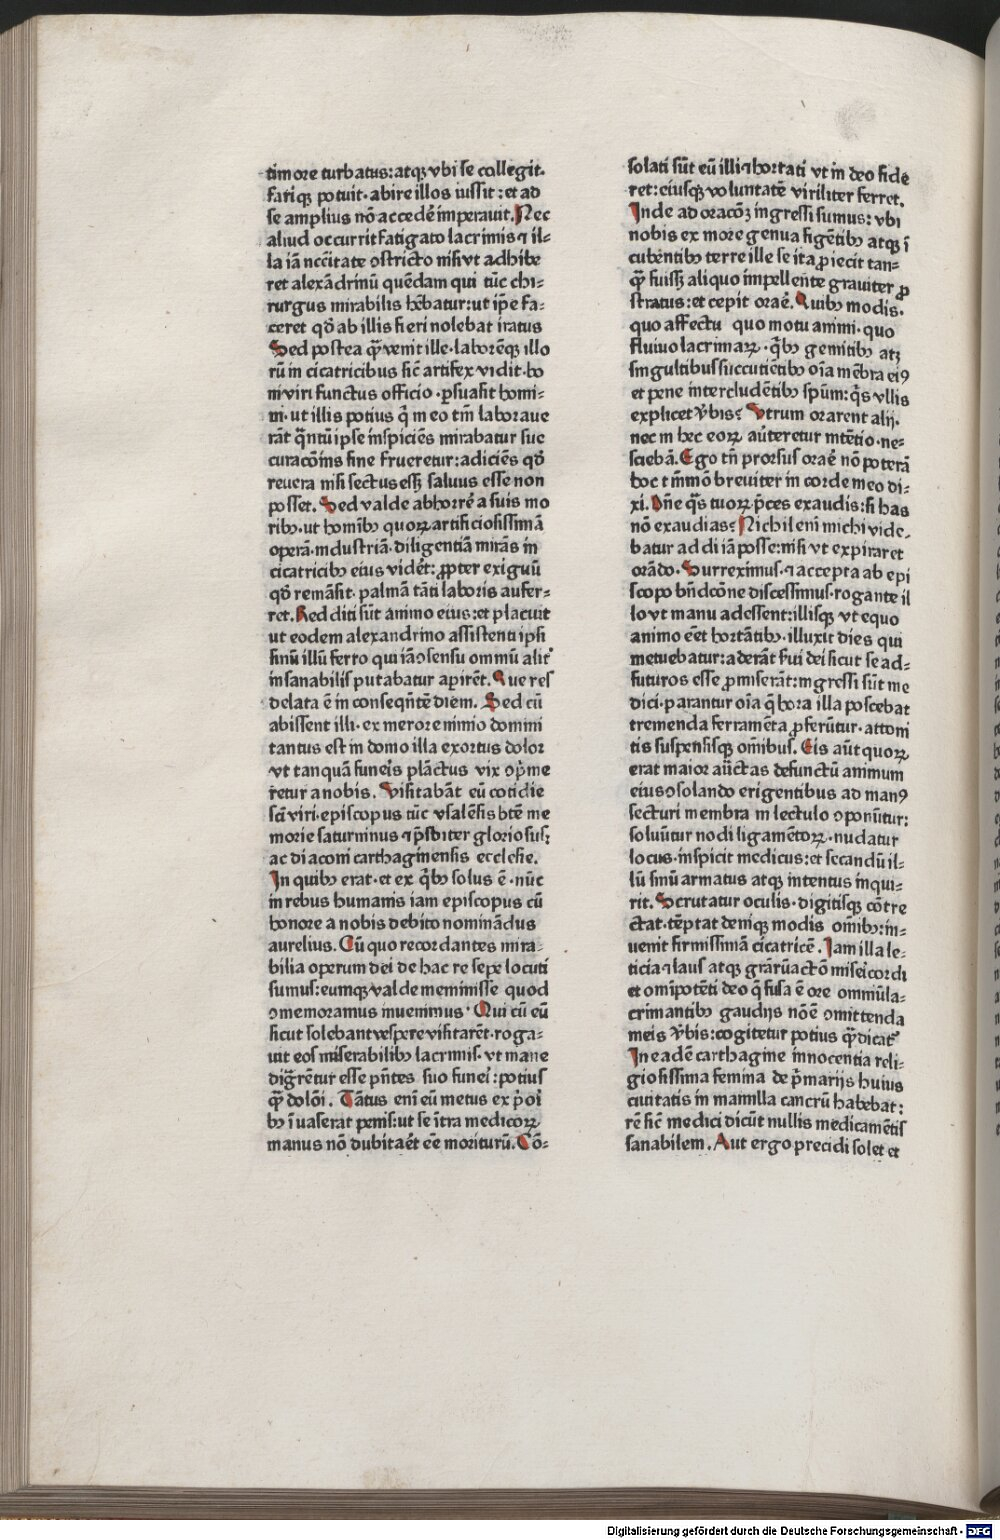 timore turbatus: atqꝫ vbi se collegit.
Fariqꝫ potuit. abire illos iussit: et ad
se amplius nō accedē imperauit. Nec
aliud occurrit fatigato lacrimis ⁊ il⸗
la iā nccītate ↄstricto nisi vt adhibe
ret alexādrinū quēdam qui tūc chi⸗
rurgus mirabilis hēbatur: ut ip̄e fa⸗
ceret qd̄ ab illis fieri nolebat iratus
Sed postea qꝫ̄ venit ille. laborēqꝫ illo
rū in cicatricibus sic̄ artifex vidit. bo
ni viri functus officio. ꝑsuasit homi⸗
ni. ut illis potius q̄ meo tm̄ laboraue
rāt q̄ntū ipse inspiciēs mirabatur suc
curacōīns fine frueretur: adiciēs qd̄
reuera nisi sectus eēꝫ saluus esse non
posset. Sed valde abhorrē a suis mo
ribꝫ. ut hom̄ibꝫ quoꝝ artificiosissimā
operā. industriā. diligentiā mirās in
cicatricibꝫ eius vidēt: ꝓpter exiguū
qd̄ remāsit. palmā tāti laboris aufer⸗
ret. Redditi sūt animo eius: et placuit
ut eodem alexandrino assistenti ipsi
sinū illū ferro qui iā ↄsensu omniū alit᷑
insanabilis putabatur apirēt. Que res
delata ē in conseqn̄tē diem. Sed cū
abissent illi. ex merore nimio domini
tantus est in domo illa exortus dolor
vt tanquā funeris plāctus vix op̄me
retur a nobis. Visitabāt eū cotidie
scī viri. episcopus tūc vsalēsis btē me
morie saturninus ⁊ p̄sbiter gloriosusꝫ
ac diaconi carthaginensis ecclesie.
In quibꝫ erat. et ex q̄bꝫ solus ē. nūc
in rebus humanis iam episcopus cū
honore a nobis debito nominādus
aurelius. Cū quo recordantes mira⸗
bilia operum dei de hac re sepe locuti
sumus: eumqꝫ valde meminisse quod
ↄmemoramus inuenimus. Qui cū eū
sicut solebant vespere visitarēt. roga⸗
uit eos miserabilibꝫ lacrimis. vt mane
dig̅rēntur esse pn̄tes suo funei: potius
qꝫ̄ dolōi. Tātus eni eū metus ex p̄oī
bꝫ īuaserat penis: ut se ītra medicoꝝ
manus nō dubitaēt eē moriturū. Cō⸗
solati sūt eū illi ⁊ hortati vt in deo fide
ret: eiusqꝫ voluntatē viriliter ferret.
Inde ad oracōꝫ ingressi sumus: vbi
nobis ex more genua figētibꝫ atqꝫ ī
cubētibꝫ terre ille se ita ꝓiecit tan⸗
qꝫ̄ fuissꝫ aliquo impellente grauiter ꝓ
stratus: et cepit oraē. Quibꝫ modis.
quo affectu quo motu animi. quo
fluiuo lacrimaꝝ. q̄bꝫ gemitibꝫ atꝫ
singultibus succutiētibꝫ oīa mēbra eiꝰ
et pene intercludētibꝫ spūm: q̄s vllis
explicet v̄bis? Vtrum orarent alij.
nec in hec eoꝝ aūteretur intētio. ne⸗
sciebā. Ego tn̄ prorsus oraē nō poterā
hoc tm̄mō breuiter in corde meo di⸗
xi. Dn̄e q̄s tuoꝝ p̄ces exaudis: si has
nō exaudias? Nichil enī michi vide⸗
batur addi iā posse: nisi vt expiraret
orādo. Surreximus. ⁊ accepta ab epi
scopo bn̄dcōne discessimus. rogante il
lo vt manu adessent: illisqꝫ vt equo
animo eēt hortātibꝫ. illuxit dies qui
metuebatur: aderāt s̄ui dei sicut se ad⸗
futuros esse ꝓmiserāt: ingressi sūt me
dici. parantur oīa q̄ hora illa poscebat
tremenda ferramēta ꝓferūtur. attoni
tis suspensisqꝫ om̄ibus. Eis aūt quoꝝ
erat maior aūctas defunctū animum
eius ↄsolando erigentibus ad manꝰ
secturi membra in lectulo ↄponūtur:
soluūtur nodi ligamētoꝝ. nudatur
locus. inspicit medicus: et secandū il⸗
lū sinū armatus atqꝫ intentus inqui⸗
rit. Scrutatur oculis. digitisqꝫ cōtre
ctat. tēptat deniqꝫ modis om̄ibꝫ: in⸗
uenit firmissimā cicatricē. Iam illa le⸗
ticia ⁊ laus atqꝫ grāꝝ actō miseicordi
et om̄ipotēti deo q̄ fusa ē ore omniū la⸗
crimantibꝫ gaudijs nō ē ↄmittenda
meis v̄bis: cogitetur potius qꝫ̄ dicat᷑
In eadē carthagine innocentia reli⸗
giosissima femina de p̄marijs huius
ciuitatis in mamilla cancrū habebat:
rē sic̄ medici dicūt nullis medicamētis
sanabilem. Aut ergo precidi solet et
Digitalisierung gefördert durch die Deutsche Forschungsgemeinschaft - DFG